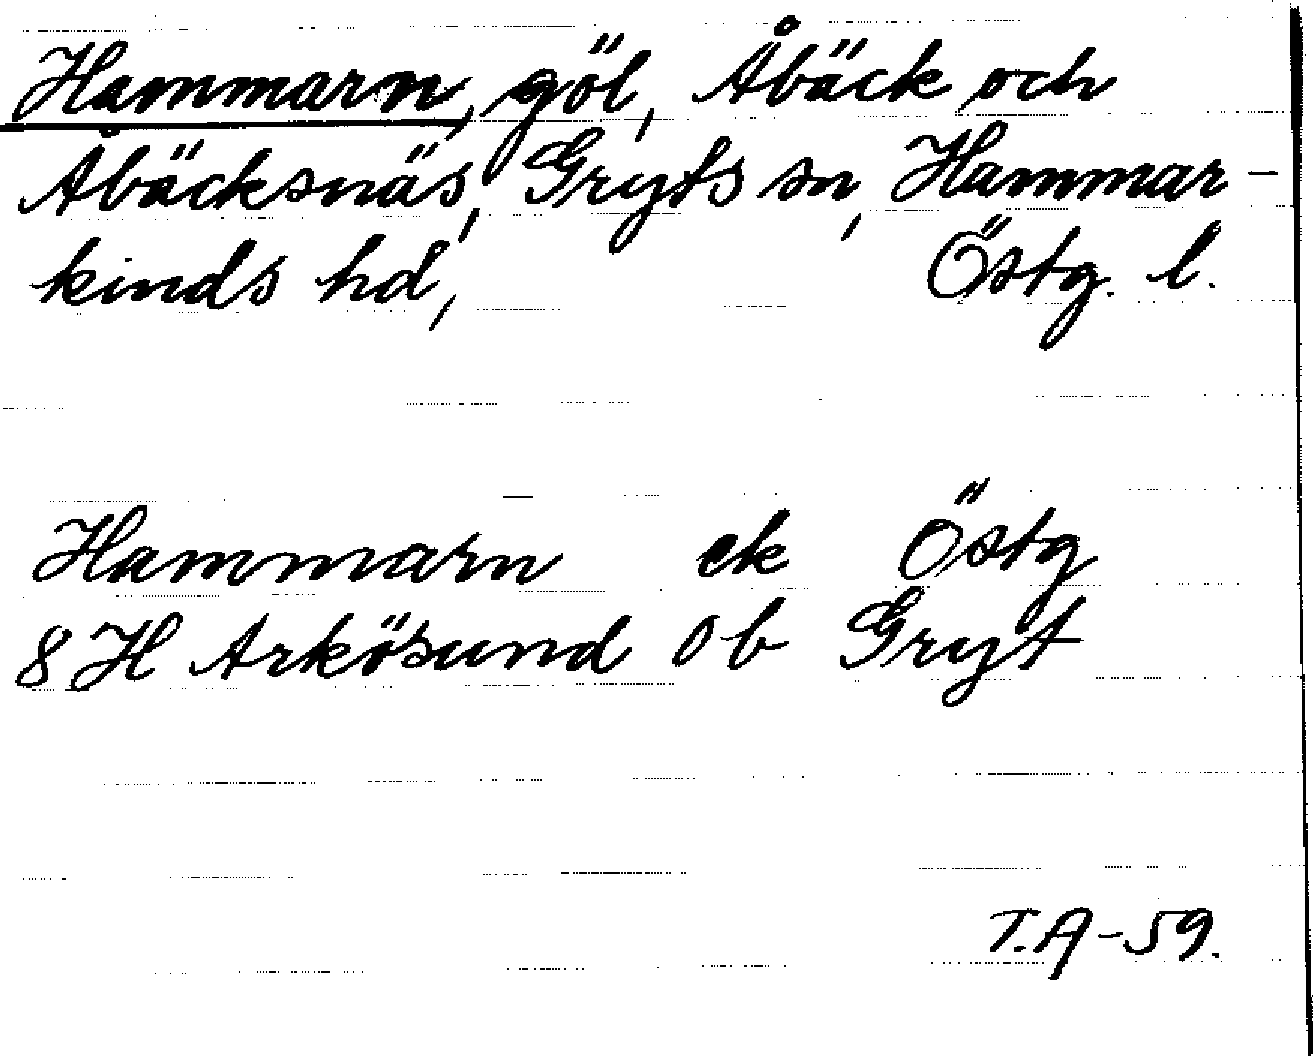 Hammarn, göl, Åbäck och
Åbäcksnäs, Gryts sn, Hammar-
kinds hd, Östg. l.
Hammarn ek Östg
8 H Arkösund Ob Gryt
T.A-59.